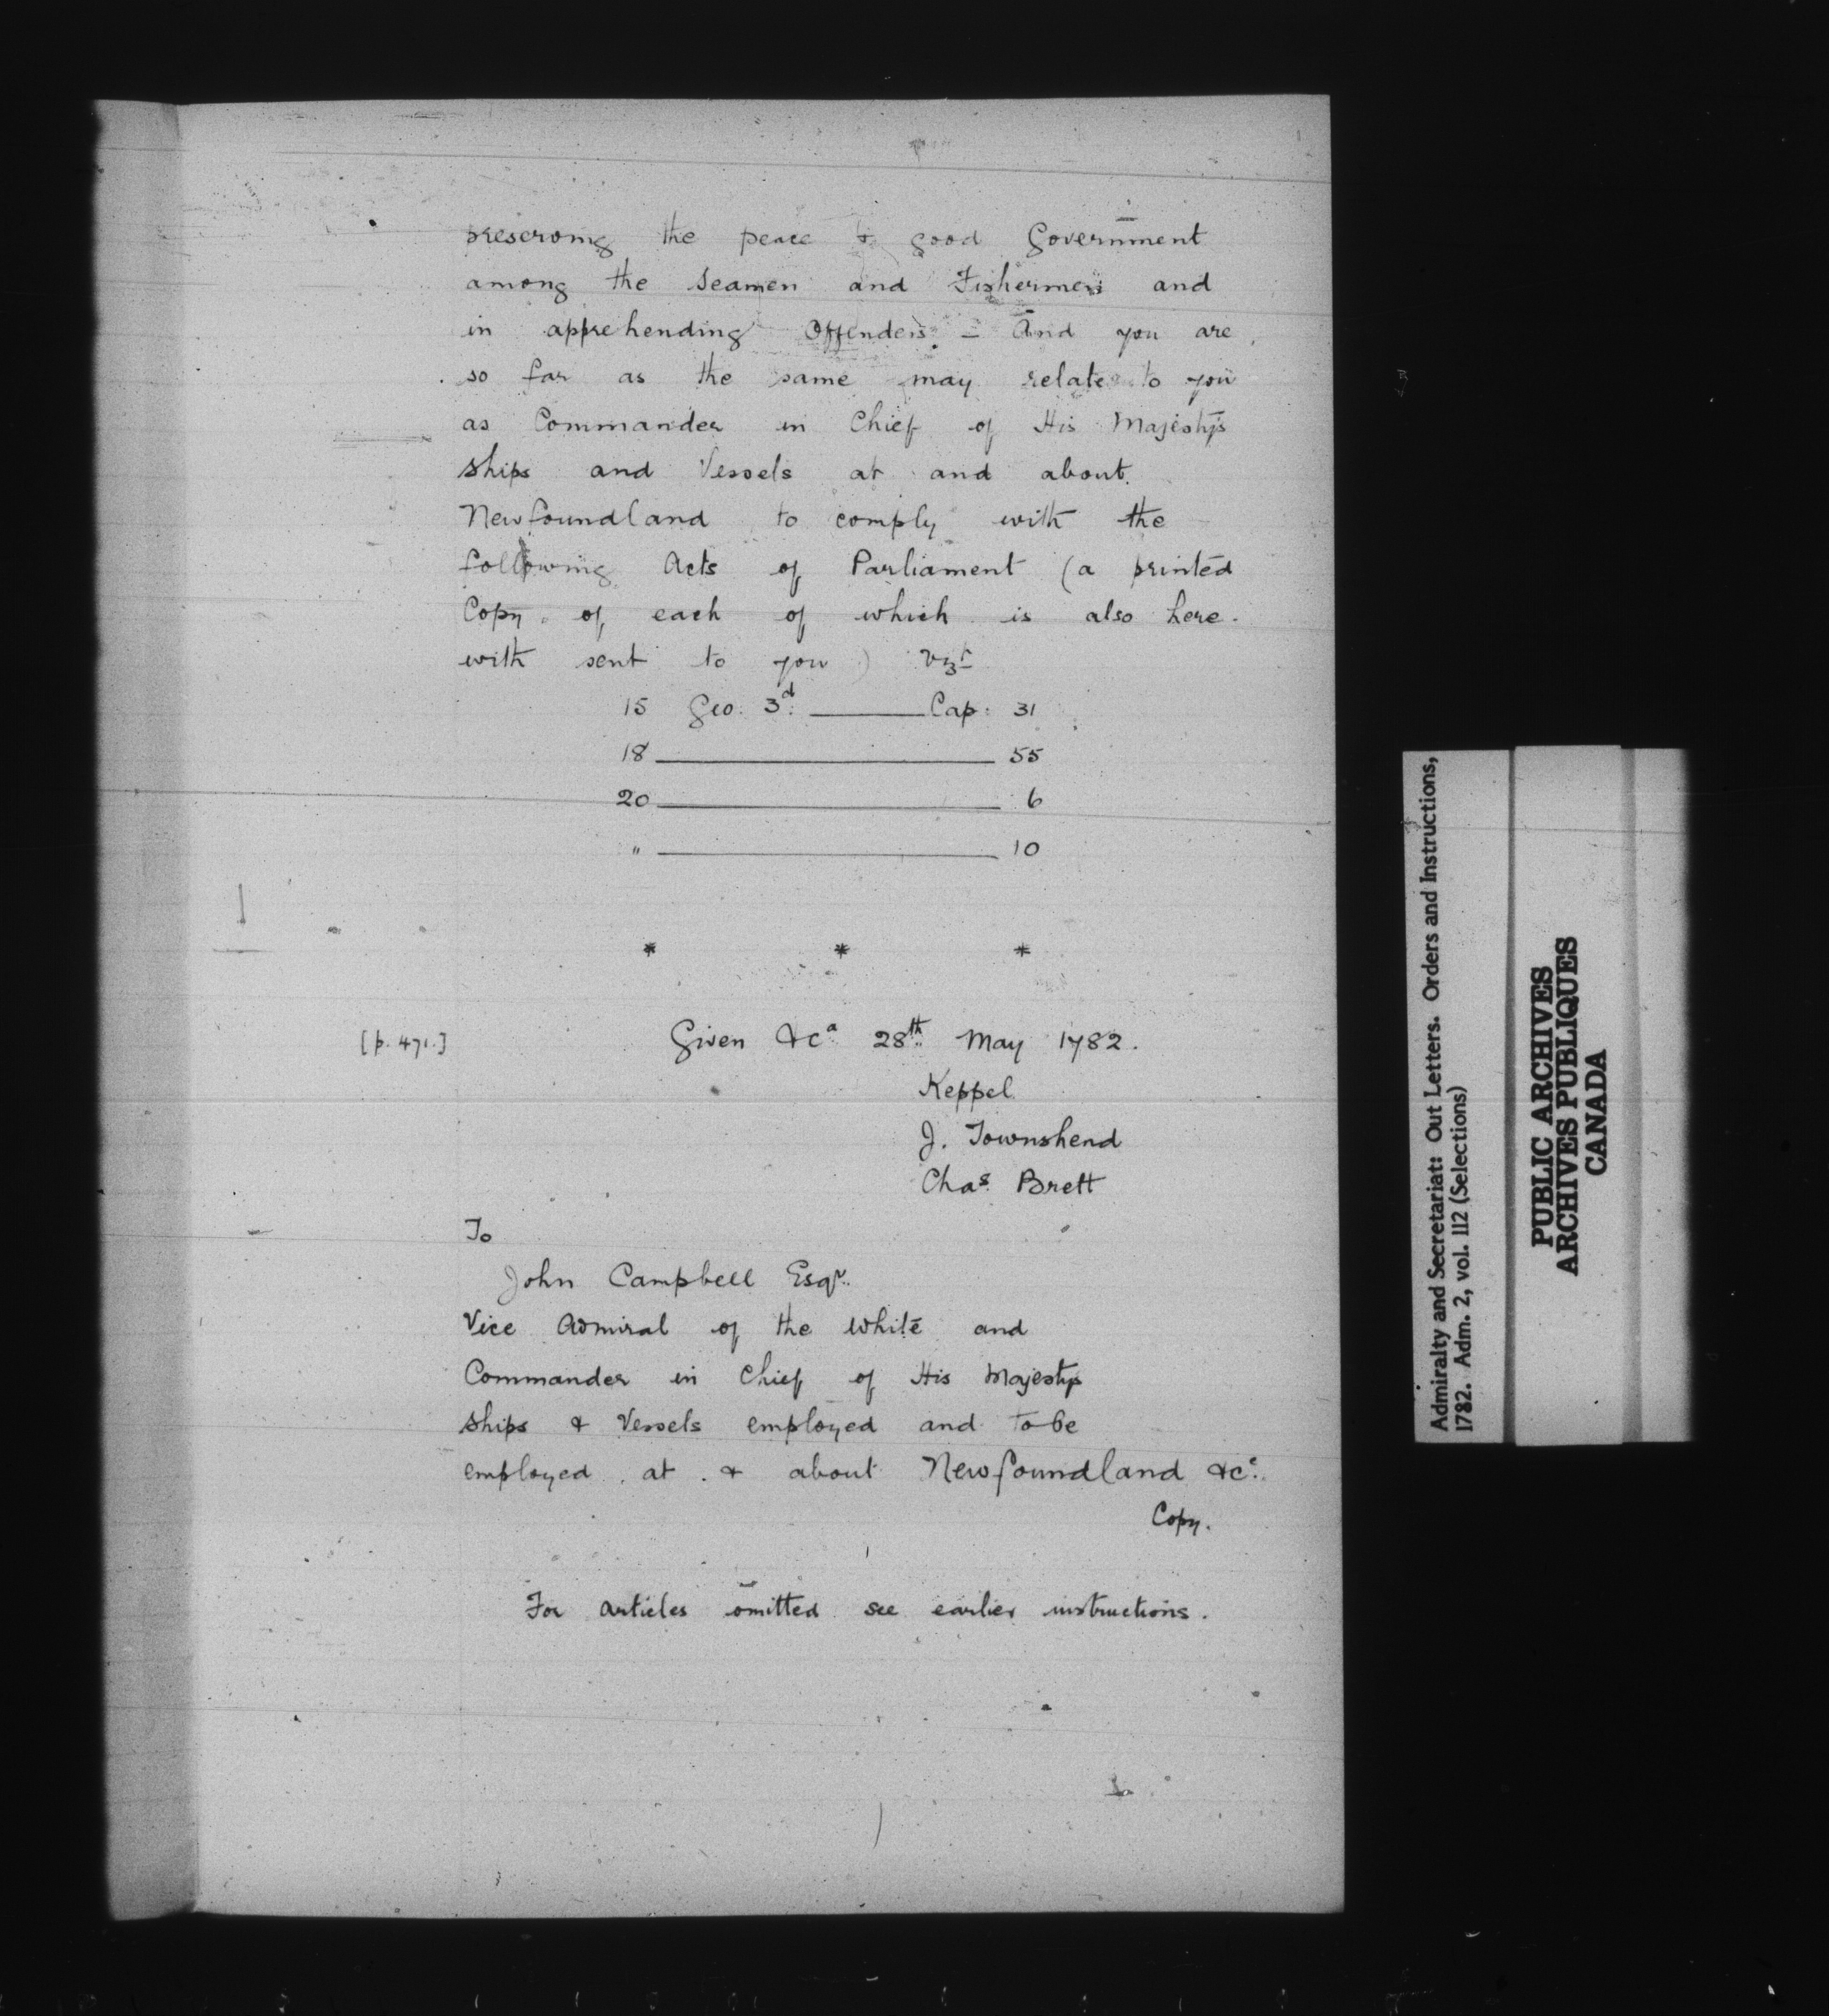 preserving the peace & good Government
among the Seamen and Fishermen and
in apprehending Offenders. – And you are,
so far as the same may relate to you
as Commander in Chief of His Majesty's
Ships and Vessels at and about
Newfoundland to comply with the
following Acts of Parliament (a printed
Copy of each of which is also here-
with sent to you) Vizt
15 Geo: 3d. ——— Cap: 31
18 ——— 55
20 ——— 6
" ——— 10
* * *
[p. 471.] Given &ca 28th May 1782.
Keppel
J. Townshend
Chas Brett
To
John Campbell Esqr.
Vice Admiral of the White and
Commander in Chief of His Majestys
Ships & Vessels employed and to be
employed at & about Newfoundland &c.
Copy.
For articles omitted see earlier instructions.
Admiralty and Secretariat: Out Letters. Orders and Instructions,
1782. Adm. 2, vol. 112 (Selections)
PUBLIC ARCHIVES
ARCHIVES PUBLIQUES
CANADA